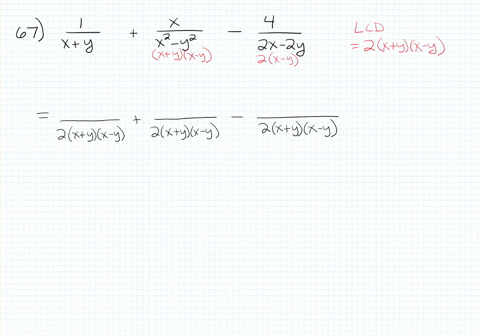 67) 1/(x+y) + x/(x²-y²) - 4/(2x-2y) LCD
(x+y)(x-y) 2(x-y) = 2(x+y)(x-y)
= /2(x+y)(x-y) + /2(x+y)(x-y) - /2(x+y)(x-y)